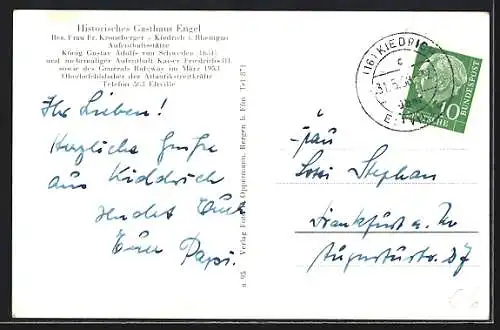 Historisches Gasthaus Engel
Bes. Frau Fr. Kroneberger - Kiedrich i. Rheingau
Aufenthaltsstätte
König Gustav Adolfs von Schweden (1631)
und mehrmaliger Aufenthalt Kaiser Friedrichs III.
sowie des Generals Ridgway im März 1953
Oberbefehlshaber der Atlantikstreitkräfte
Telefon 563 Eltville
Ihr Lieben!
Herzliche Grüße
aus Kiddrich
sendet Euch
Euer Papi.
a 95 Verlag Foto Oppermann, Bergen b. Ffm Tel 871
(16) KIEDRICH
c
31.5.58
DEUTSCHE BUNDESPOST
10
Frau
Stephan
Frankfurt a. M
Auguststr. 27